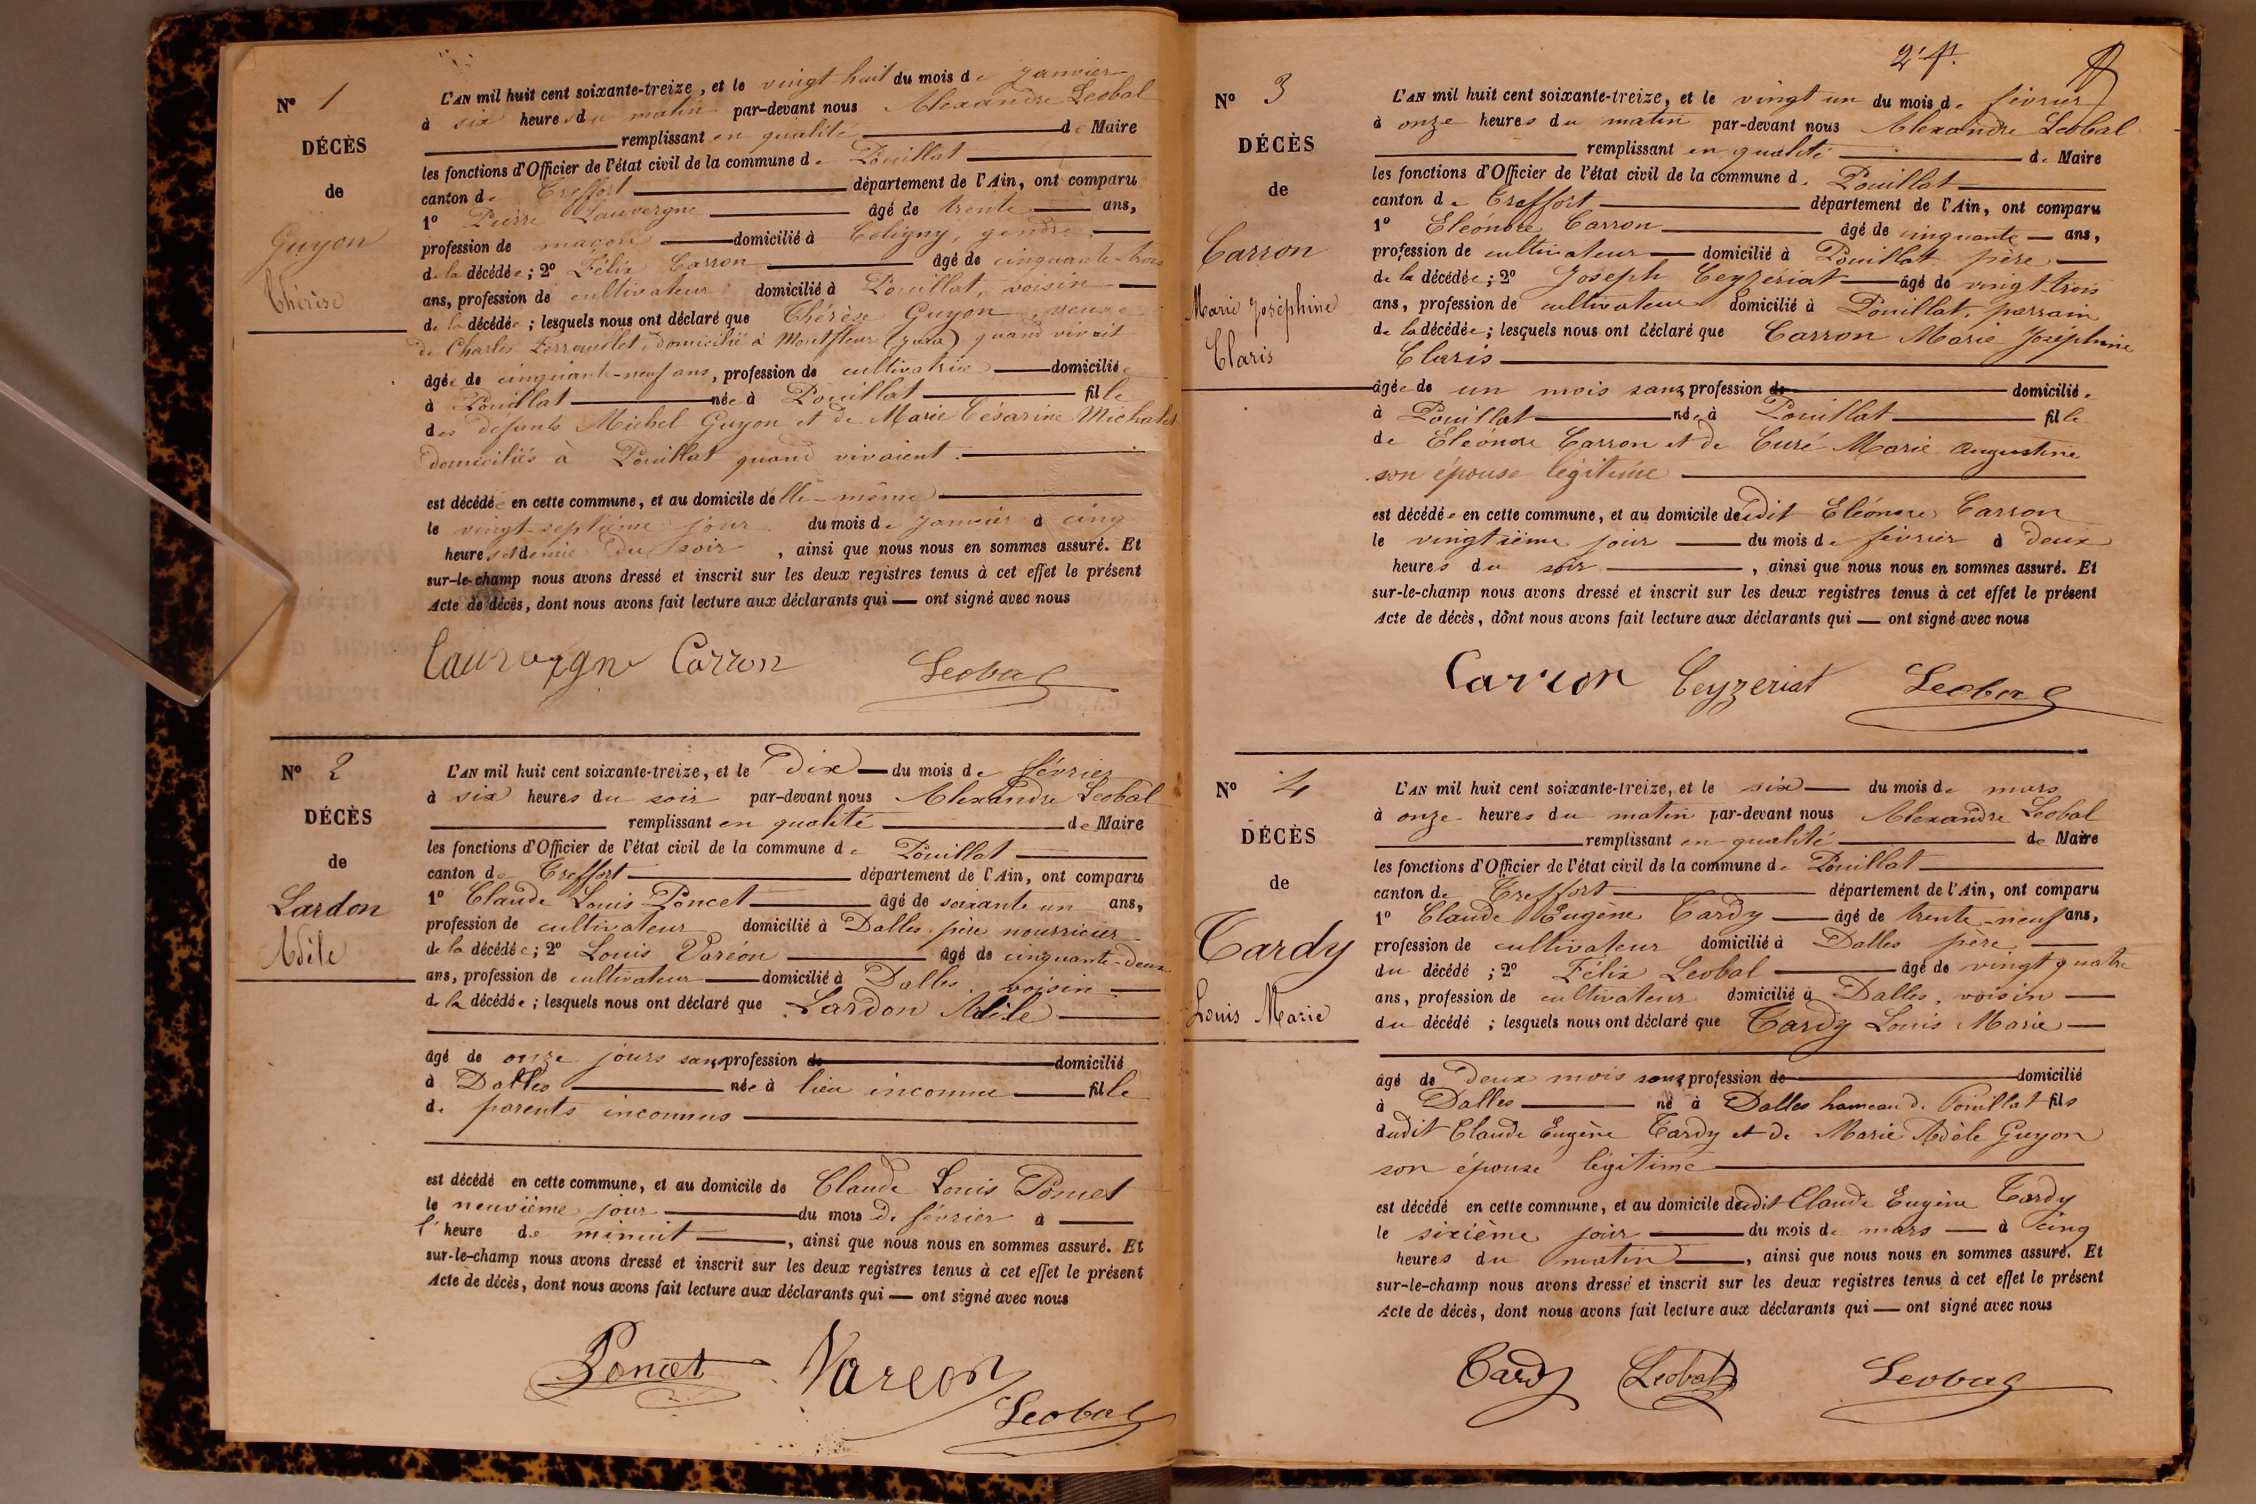 N° 1
DÉCÈS
de
Guyon
Thérèse
L'AN mil huit cent soixante-treize, et le vingt-huit du mois de janvier
à six heures du matin par-devant nous Alexandre Leobal
remplissant en qualité de Maire
les fonctions d'Officier de l'état civil de la commune de Pouillat
canton de Treffort département de l'Ain, ont comparu
1° Pierre Lauvergne âgé de trente ans,
profession de maçon domicilié à Coligny, gendre
de la décédée; 2° Félix Carron âgé de cinquante-trois
ans, profession de cultivateur domicilié à Pouillat, voisin
de la décédée; lesquels nous ont déclaré que Thérèse Guyon, veuve
de Charles domicilié à Montfleur (Jura) quand vivait
âgée de cinquante-neuf ans, profession de cultivatrice domiciliée
à Pouillat née à Pouillat fille
des défunts Michel Guyon et de Marie Césarine
domiciliés à Pouillat quand vivaient.
est décédée en cette commune, et au domicile d'elle-même
le vingt-septième jour du mois de janvier à cinq
heures et demie du soir, ainsi que nous nous en sommes assuré. Et
sur-le-champ nous avons dressé et inscrit sur les deux registres tenus à cet effet le présent
Acte de décès, dont nous avons fait lecture aux déclarants qui — ont signé avec nous
Lauvergne Carron Leobal
N° 2
DÉCÈS
de
Lardon
Adèle
L'AN mil huit cent soixante-treize, et le dix du mois de février
à six heures du soir par-devant nous Alexandre Leobal
remplissant en qualité de Maire
les fonctions d'Officier de l'état civil de la commune de Pouillat
canton de Treffort département de l'Ain, ont comparu
1° Claude Louis Poncet âgé de soixante un ans,
profession de cultivateur domicilié à Dalles père nourricier
de la décédée; 2° Louis Varéon âgé de cinquante-deux
ans, profession de cultivateur domicilié à Dalles, voisin
de la décédée; lesquels nous ont déclaré que Lardon Adèle
âgé de onze jours sans profession de domicilié
à Dalles née à lieu inconnu fille
de parents inconnus
est décédé en cette commune, et au domicile de Claude Louis Poncet
le neuvième jour du mois de février à
l'heure de minuit, ainsi que nous nous en sommes assuré. Et
sur-le-champ nous avons dressé et inscrit sur les deux registres tenus à cet effet le présent
Acte de décès, dont nous avons fait lecture aux déclarants qui — ont signé avec nous
Poncet Vareon
Leobal
N° 3
DÉCÈS
de
Carron
Marie Joséphine
Claris
L'AN mil huit cent soixante-treize, et le vingt un du mois de février
à onze heures du matin par-devant nous Alexandre Leobal
remplissant en qualité de Maire
les fonctions d'Officier de l'état civil de la commune de Pouillat
canton de Treffort département de l'Ain, ont comparu
1° Eléonore Carron âgé de cinquante ans,
profession de cultivateur domicilié à Pouillat père
de la décédée; 2° Joseph Ceyzériat âgé de vingt-trois
ans, profession de cultivateur domicilié à Pouillat, parrain
de la décédée; lesquels nous ont déclaré que Carron Marie Joséphine
Claris
âgée de un mois sans profession de domiciliée
à Pouillat née à Pouillat fille
de Eléonore Carron et de Curé Marie Augustine
son épouse légitime
est décédée en cette commune, et au domicile dudit Eléonore Carron
le vingtième jour du mois de février à deux
heures du soir, ainsi que nous nous en sommes assuré. Et
sur-le-champ nous avons dressé et inscrit sur les deux registres tenus à cet effet le présent
Acte de décès, dont nous avons fait lecture aux déclarants qui — ont signé avec nous
Carron Ceyzeriat Leobal
N° 4
DÉCÈS
de
Tardy
Louis Marie
L'AN mil huit cent soixante-treize, et le six du mois de mars
à onze heures du matin par-devant nous Alexandre Leobal
remplissant en qualité de Maire
les fonctions d'Officier de l'état civil de la commune de Pouillat
canton de Treffort département de l'Ain, ont comparu
1° Claude Eugène Tardy âgé de trente-neuf ans,
profession de cultivateur domicilié à Dalles père
du décédé; 2° Félix Leobal âgé de vingt quatre
ans, profession de cultivateur domicilié à Dalles, voisin
du décédé; lesquels nous ont déclaré que Tardy Louis Marie
âgé de deux mois sans profession de domicilié
à Dalles né à Dalles hameau de Pouillat fils
dudit Claude Eugène Tardy et de Marie Adèle Guyon
son épouse légitime
est décédé en cette commune, et au domicile dudit Claude Eugène Tardy
le sixième jour du mois de mars à cinq
heures du matin, ainsi que nous nous en sommes assuré. Et
sur-le-champ nous avons dressé et inscrit sur les deux registres tenus à cet effet le présent
Acte de décès, dont nous avons fait lecture aux déclarants qui — ont signé avec nous
Tardy Leobal Leobal